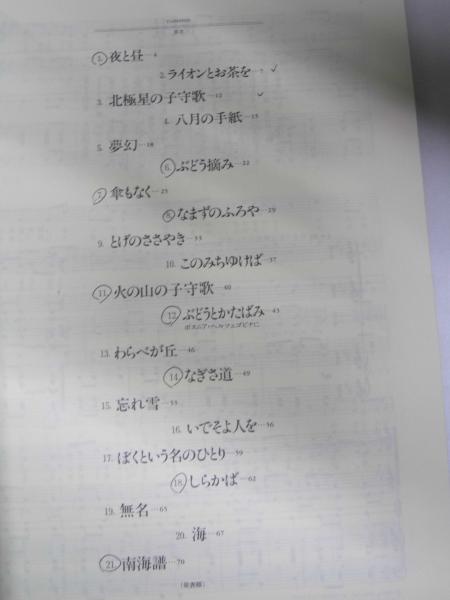 Contents
目次
1. 夜と昼…4
2. ライオンとお茶を…7
3. 北極星の子守歌…12
4. 八月の手紙…15
5. 夢幻…18
6. ぶどう摘み…22
7. 傘もなく…25
8. なまずのふろや…29
9. とげのささやき…33
10. このみちゆけば…37
11. 火の山の子守歌…40
12. ぶどうとかたばみ…43
ボスニア・ヘルツェゴビナに
13. わらべが丘…46
14. なぎさ道…49
15. 忘れ雪…53
16. いでそよ人を…56
17. ぼくという名のひとり…59
18. しらかば…62
19. 無名…65
20. 海…67
21. 南海譜…70